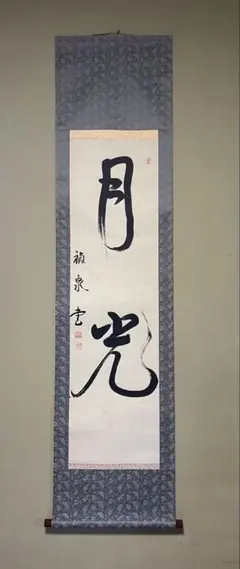 月光
禎泉書